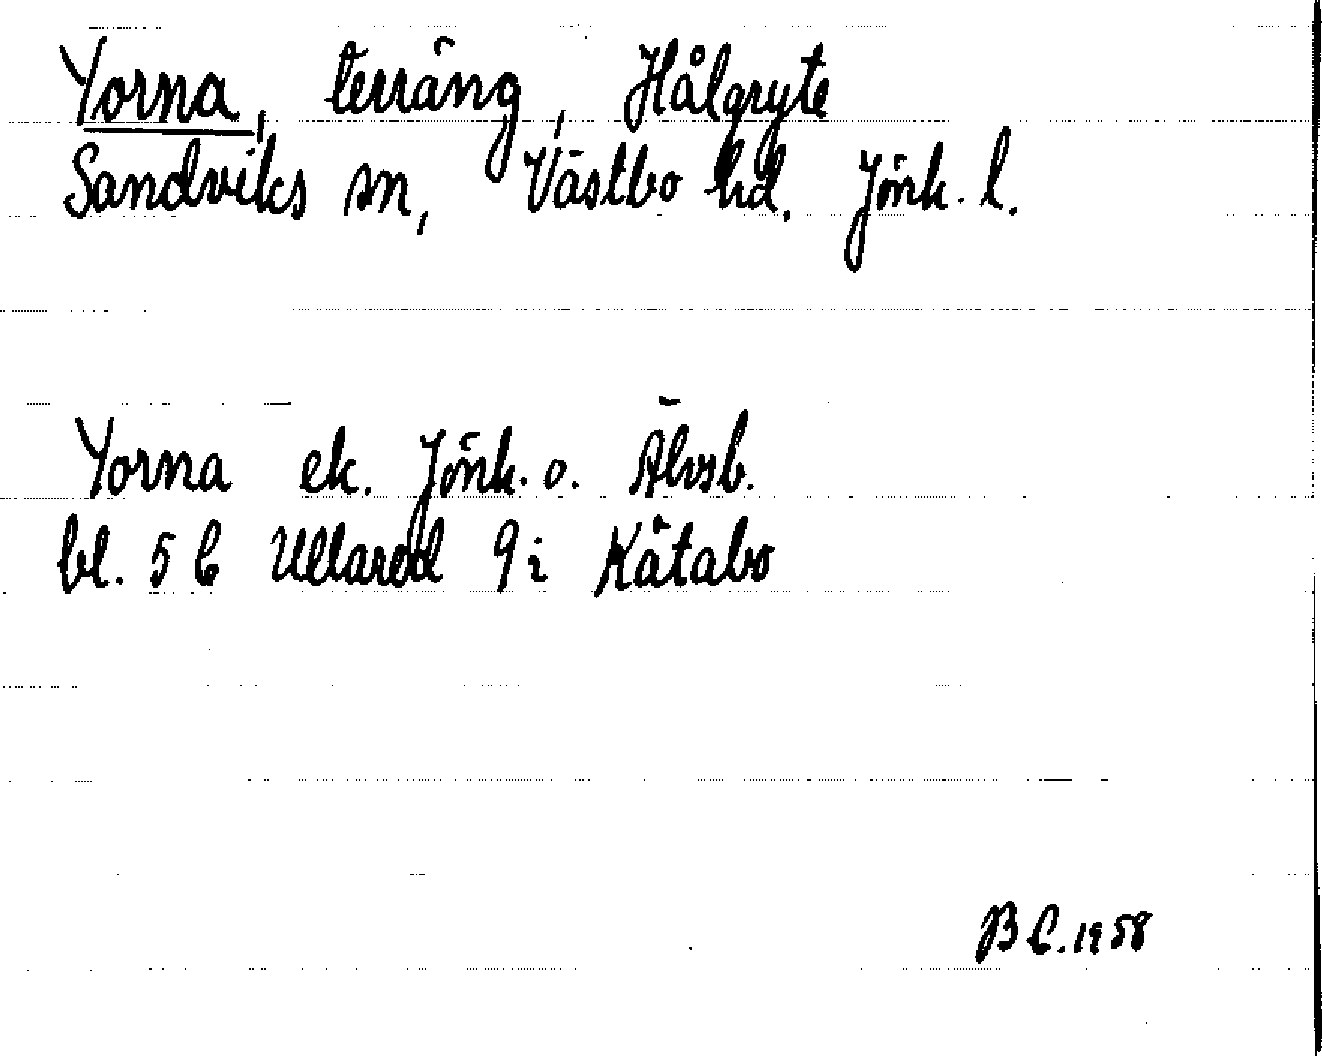 Yorna, terräng, Hålgryte
Sandviks sn, Västbo hd. Jönk. l.
Yorna ek. Jönk. o. Älvsb.
bl. 5 C Ullared 9 i Kåtabo
B C. 1958